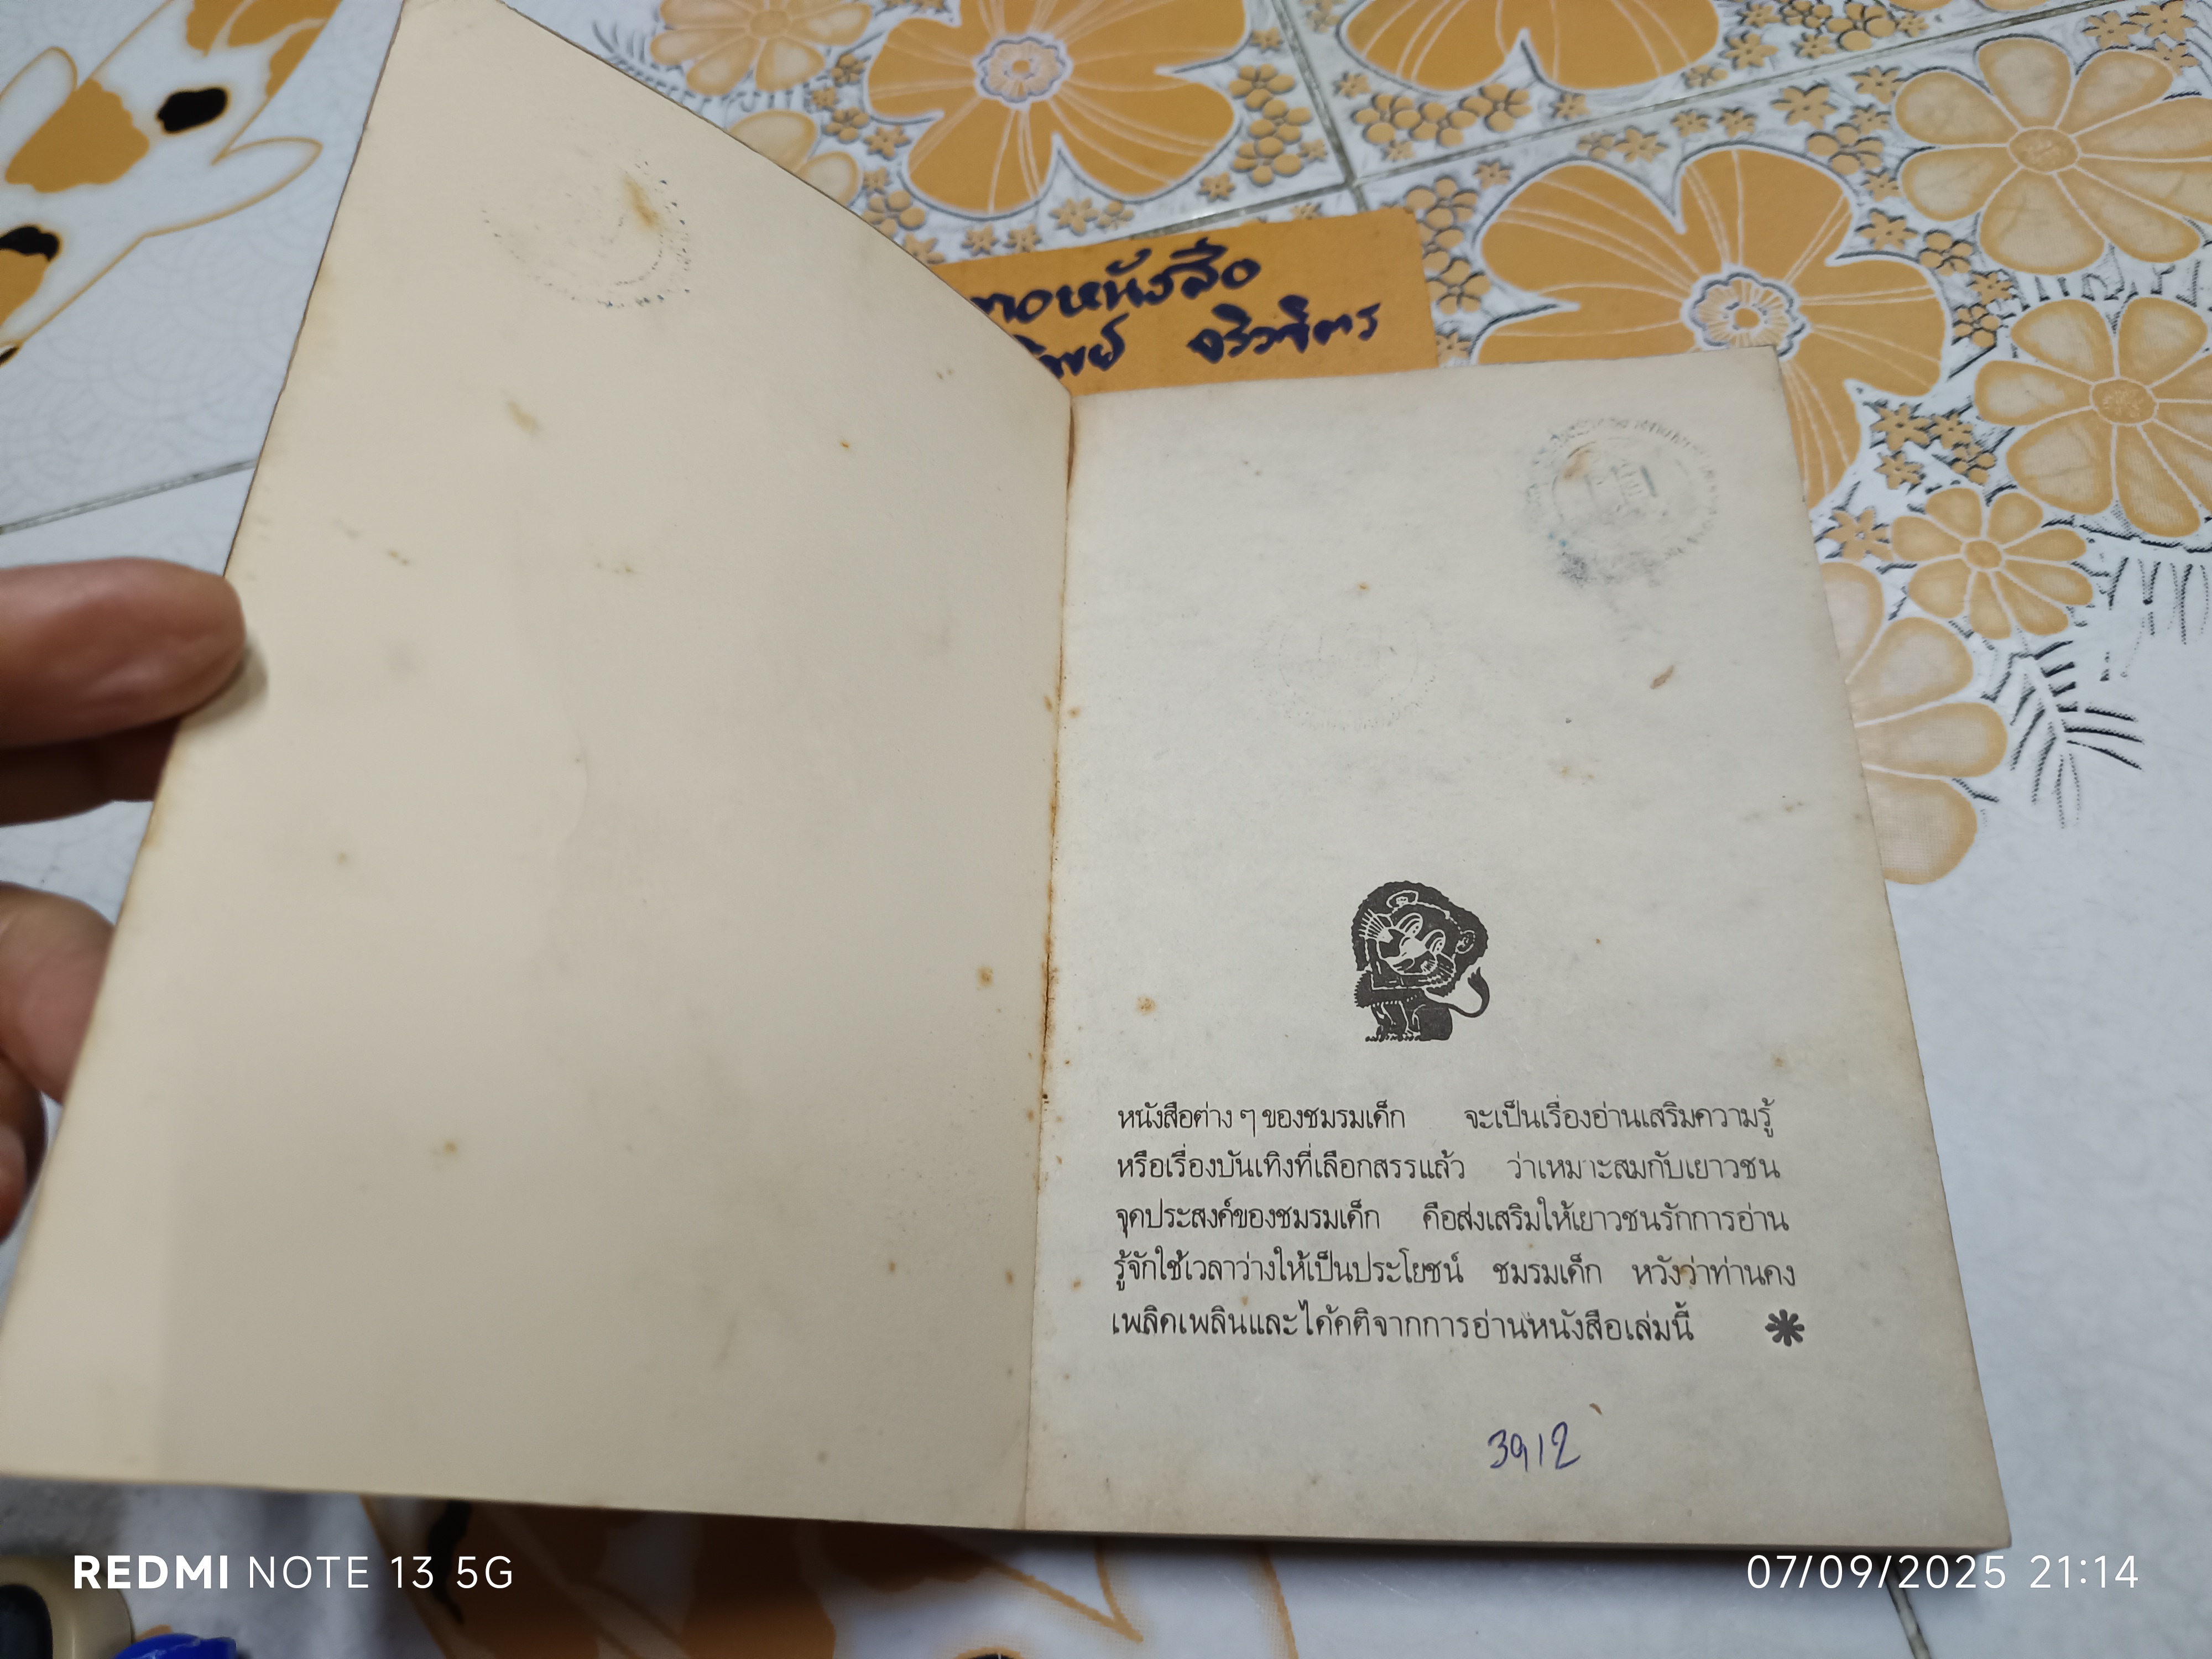 หนังสือ
หนังสือต่าง ๆ ของชมรมเด็ก จะเป็นเรื่องอ่านเสริมความรู้
หรือเรื่องบันเทิงที่เลือกสรรแล้ว ว่าเหมาะสมกับเยาวชน
จุดประสงค์ของชมรมเด็ก คือส่งเสริมให้เยาวชนรักการอ่าน
รู้จักใช้เวลาว่างให้เป็นประโยชน์ ชมรมเด็ก หวังว่าท่านคง
เพลิดเพลินและได้คติจากการอ่านหนังสือเล่มนี้
3912
REDMI NOTE 13 5G
07/09/2025 21:14